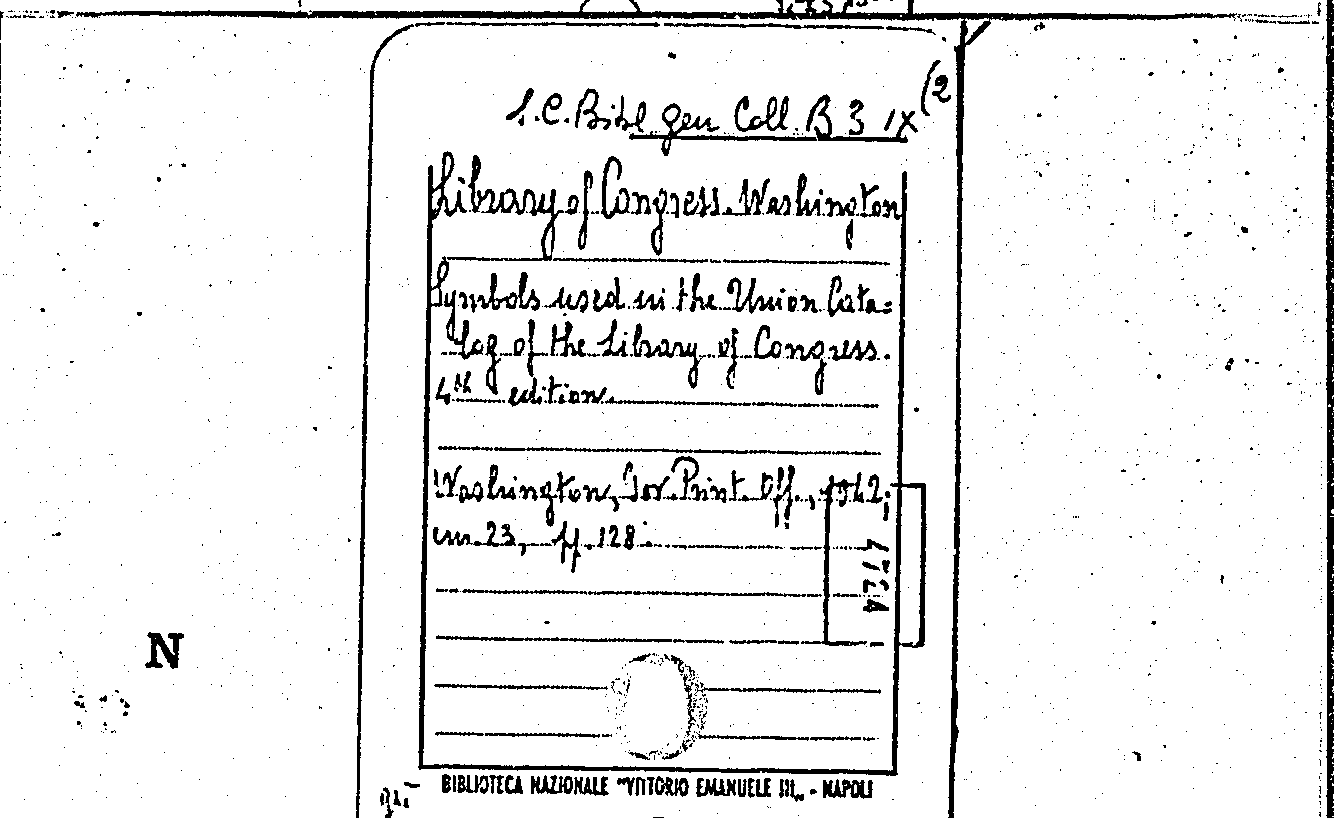 (2
S.C. Bibl gen Coll. B 3 IX
Library of Congress. Washington
Symbols used in the Union Cata=
log of the Library of Congress.
4th edition.
Washington, Gov. Print. Off., 1942;
cm. 23, pp. 128.
N
BIBLIOTECA NAZIONALE "VITTORIO EMANUELE III„ - NAPOLI